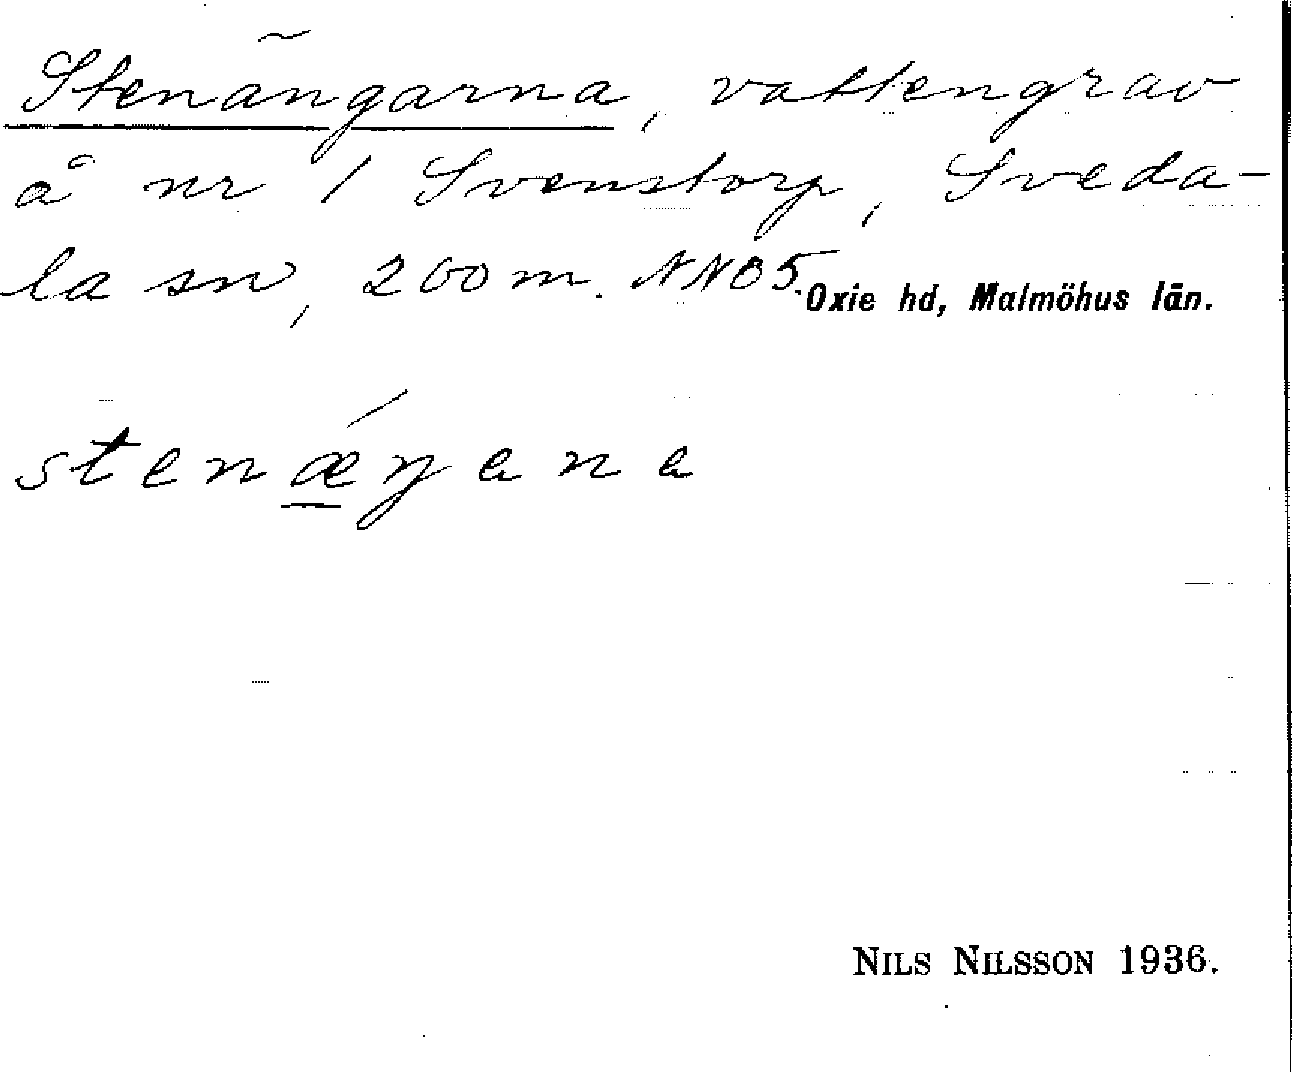 Stenängarna, vattengrav
å nr 1 Svenstorp, Sveda-
la sn, 200 m. NNO5.
Oxie hd, Malmöhus län.
stenæŋana
NILS NILSSON 1936.